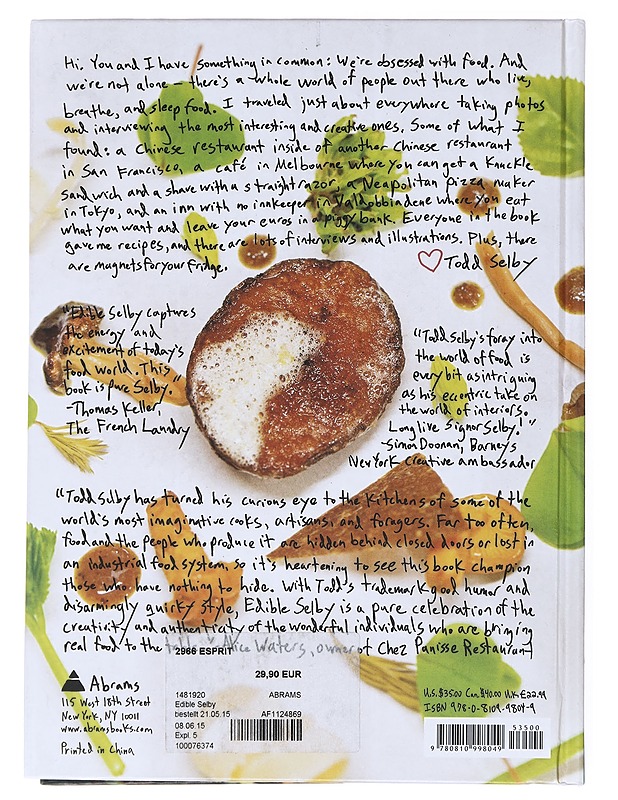 Hi. You and I have something in common: We're obsessed with food. And
we're not alone - there's a whole world of people out there who live,
breathe, and sleep food. I traveled just about everywhere taking photos
and interviewing the most interesting and creative ones. Some of what I
found: a Chinese restaurant inside of another Chinese restaurant
in San Francisco, a café in Melbourne where you can get a Knuckle
Sandwich and a shave with a straight razor, a Neapolitan pizza maker
in Tokyo, and an inn with no innkeeper in Valdobbiadene where you eat
what you want and leave your euros in a piggy bank. Everyone in the book
gave me recipes, and there are lots of interviews and illustrations. Plus, there
are magnets for your fridge.
♡ Todd Selby
"Edible Selby captures
the energy and
excitement of today's
food world. This
book is pure Selby."
-Thomas Keller,
The French Laundry
"Todd Selby's foray into
the world of food is
every bit as intriguing
as his eccentric take on
the world of interiors.
Long live Signor Selby!"
-Simon Doonan, Barneys
New York Creative ambassador
"Todd Selby has turned his curious eye to the kitchens of some of the
world's most imaginative cooks, artisans, and foragers. Far too often,
food and the people who produce it are hidden behind closed doors or lost in
an industrial food system, so it's heartening to see this book champion
those who have nothing to hide. With Todd's trademark good humor and
disarmingly quirky style, Edible Selby is a pure celebration of the
creativity and authenticity of the wonderful individuals who are bringing
real food to the table." Alice Waters, owner of Chez Panisse Restaurant
2966 ESPRIT
29,90 EUR
1481920 ABRAMS
Edible Selby
bestellt 21.05.15 AF1124869
08.06.15
Expl. 5
100076374
Abrams
115 West 18th Street
New York, NY 10011
www.abramsbooks.com
Printed in China
U.S. $35.00 Can. $40.00 U.K. £22.99
ISBN 978-0-8109-9804-9
53500
9 780810 998049